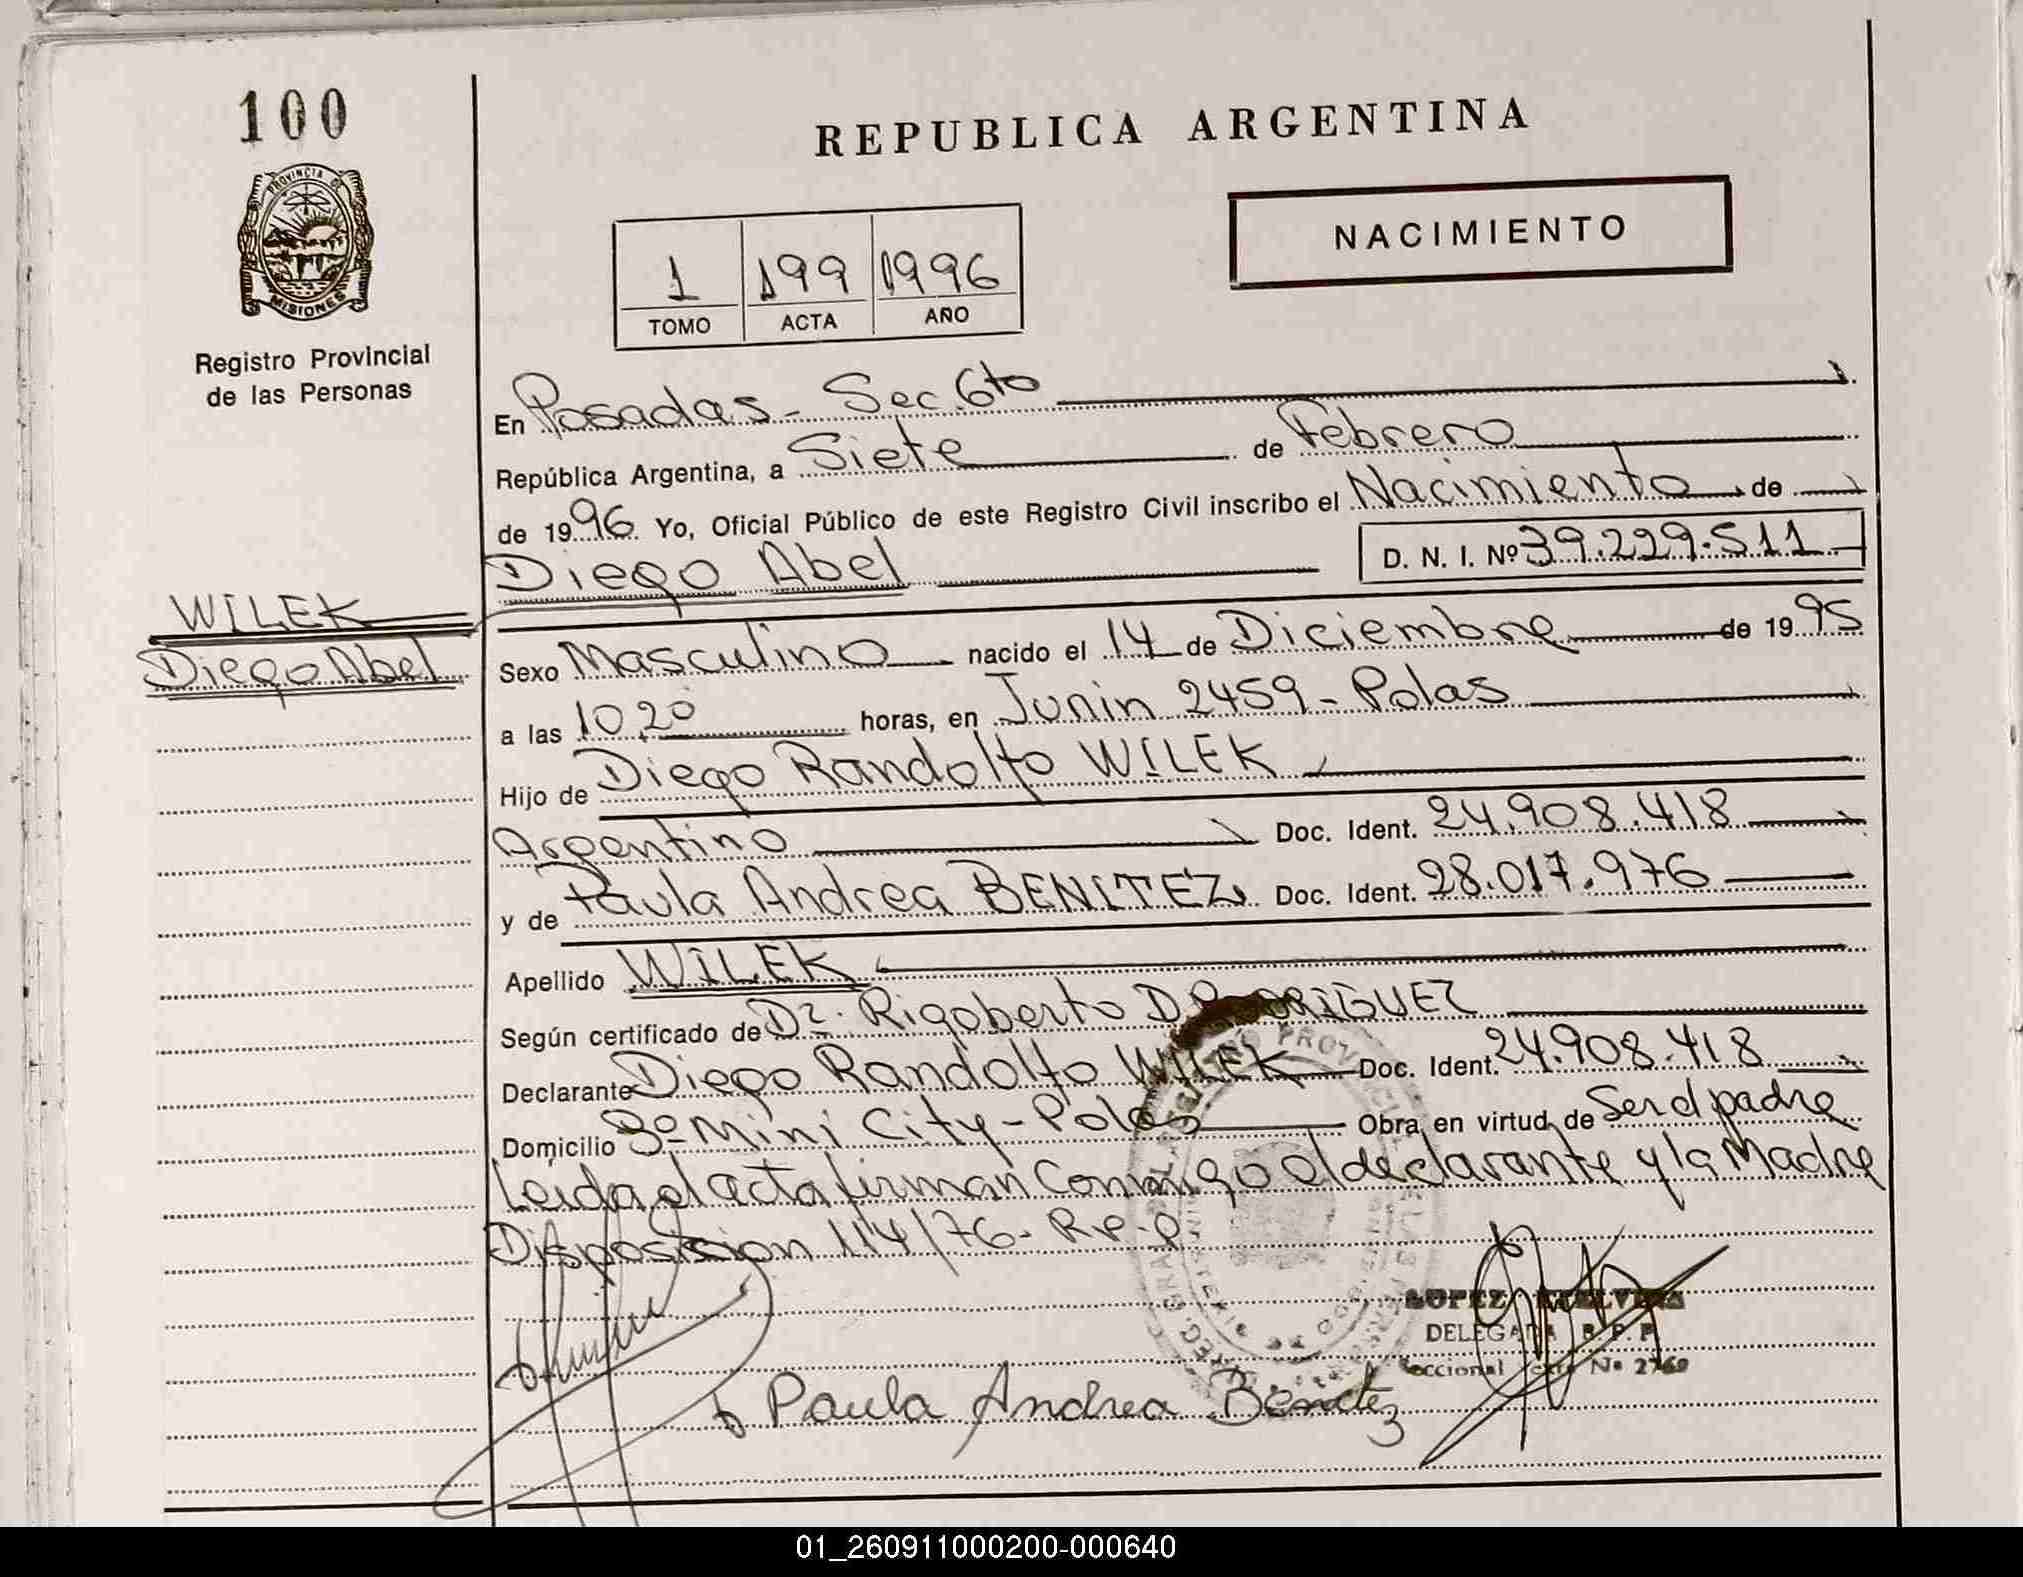 100
PROVINCIA DE
MISIONES
Registro Provincial
de las Personas
WILEK
Diego Abel
REPUBLICA ARGENTINA
NACIMIENTO
1 199 1996
TOMO ACTA AÑO
En Posadas - Sec. 6to
República Argentina, a Siete de Febrero
de 1996 Yo, Oficial Público de este Registro Civil inscribo el Nacimiento de
Diego Abel D. N. I. Nº 39.229.511
Sexo Masculino nacido el 14 de Diciembre de 1995
a las 10,20 horas, en Junin 2459 - Pdas
Hijo de Diego Randolfo WILEK
Argentino Doc. Ident. 24.908.418
y de Paula Andrea BENITEZ Doc. Ident. 28.017.976
Apellido WILEK
Según certificado de Dr. Rigoberto D RODRIGUEZ
Declarante Diego Randolfo WILEK Doc. Ident. 24.908.418
Domicilio Bº Mini City - Pdas Obra en virtud de Ser el padre
Leida el acta firman Conmigo el declarante y la Madre
Disposicion 114/76 - R.P.P
LOPEZ
DELEGADA R. P. P.
Seccional Nº
Paula Andrea Benitez
01_260911000200-000640